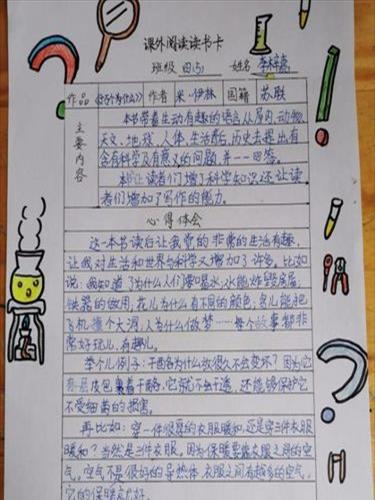 课外阅读读书卡
班级 四(5) 姓名 李梓嘉
作品 《十万个为什么》 作者 米·伊林 国籍 苏联
主要内容
本书带着生动有趣的语言从屋内、动物、
天文、地球、人体、生活酷、历史去提出有
含有科学及有意义的问题,并一一回答。
本书让读者们增了科学知识还让读
者们增加了写作的能力。
心得体会
这一本书读后让我觉的非常的生活有趣,
让我对生活和世界与科学又增加了许多,比如
说:我知道了为什么人们要喝水;水能炸毁房屋;
铁器的做用;花儿为什么有不同的颜色;鸟儿能把
飞机撞个大洞,人为什么做梦……每个故事都非
常好玩儿,有趣儿。
举个儿例子:干面包为什么放很久不会变坏?因为它
有一层皮包裹着干面包,它就不会干透,还能够保护它
不受细菌的损害。
再比如:穿一件很厚的衣服暖和,还是穿三件衣服
暖和?当然是三件衣服,因为保暖要靠衣服之间的空
气。空气不是很好的导热体,衣服之间有越多的空气,
它的保暖就好。